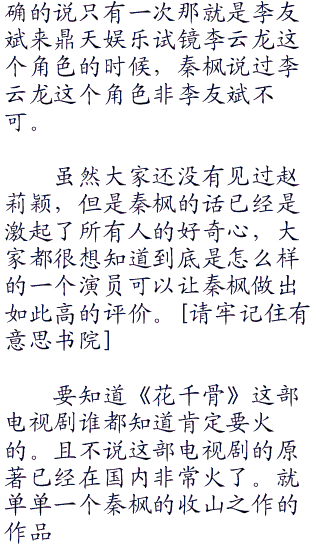 确的说只有一次那就是李友
斌来鼎天娱乐试镜李云龙这
个角色的时候，秦枫说过李
云龙这个角色非李友斌不
可。
虽然大家还没有见过赵
莉颖，但是秦枫的话已经是
激起了所有人的好奇心，大
家都很想知道到底是怎么样
的一个演员可以让秦枫做出
如此高的评价。[请牢记住有
意思书院]
要知道《花千骨》这部
电视剧谁都知道肯定要火
的。且不说这部电视剧的原
著已经在国内非常火了。就
单单一个秦枫的收山之作的
作品